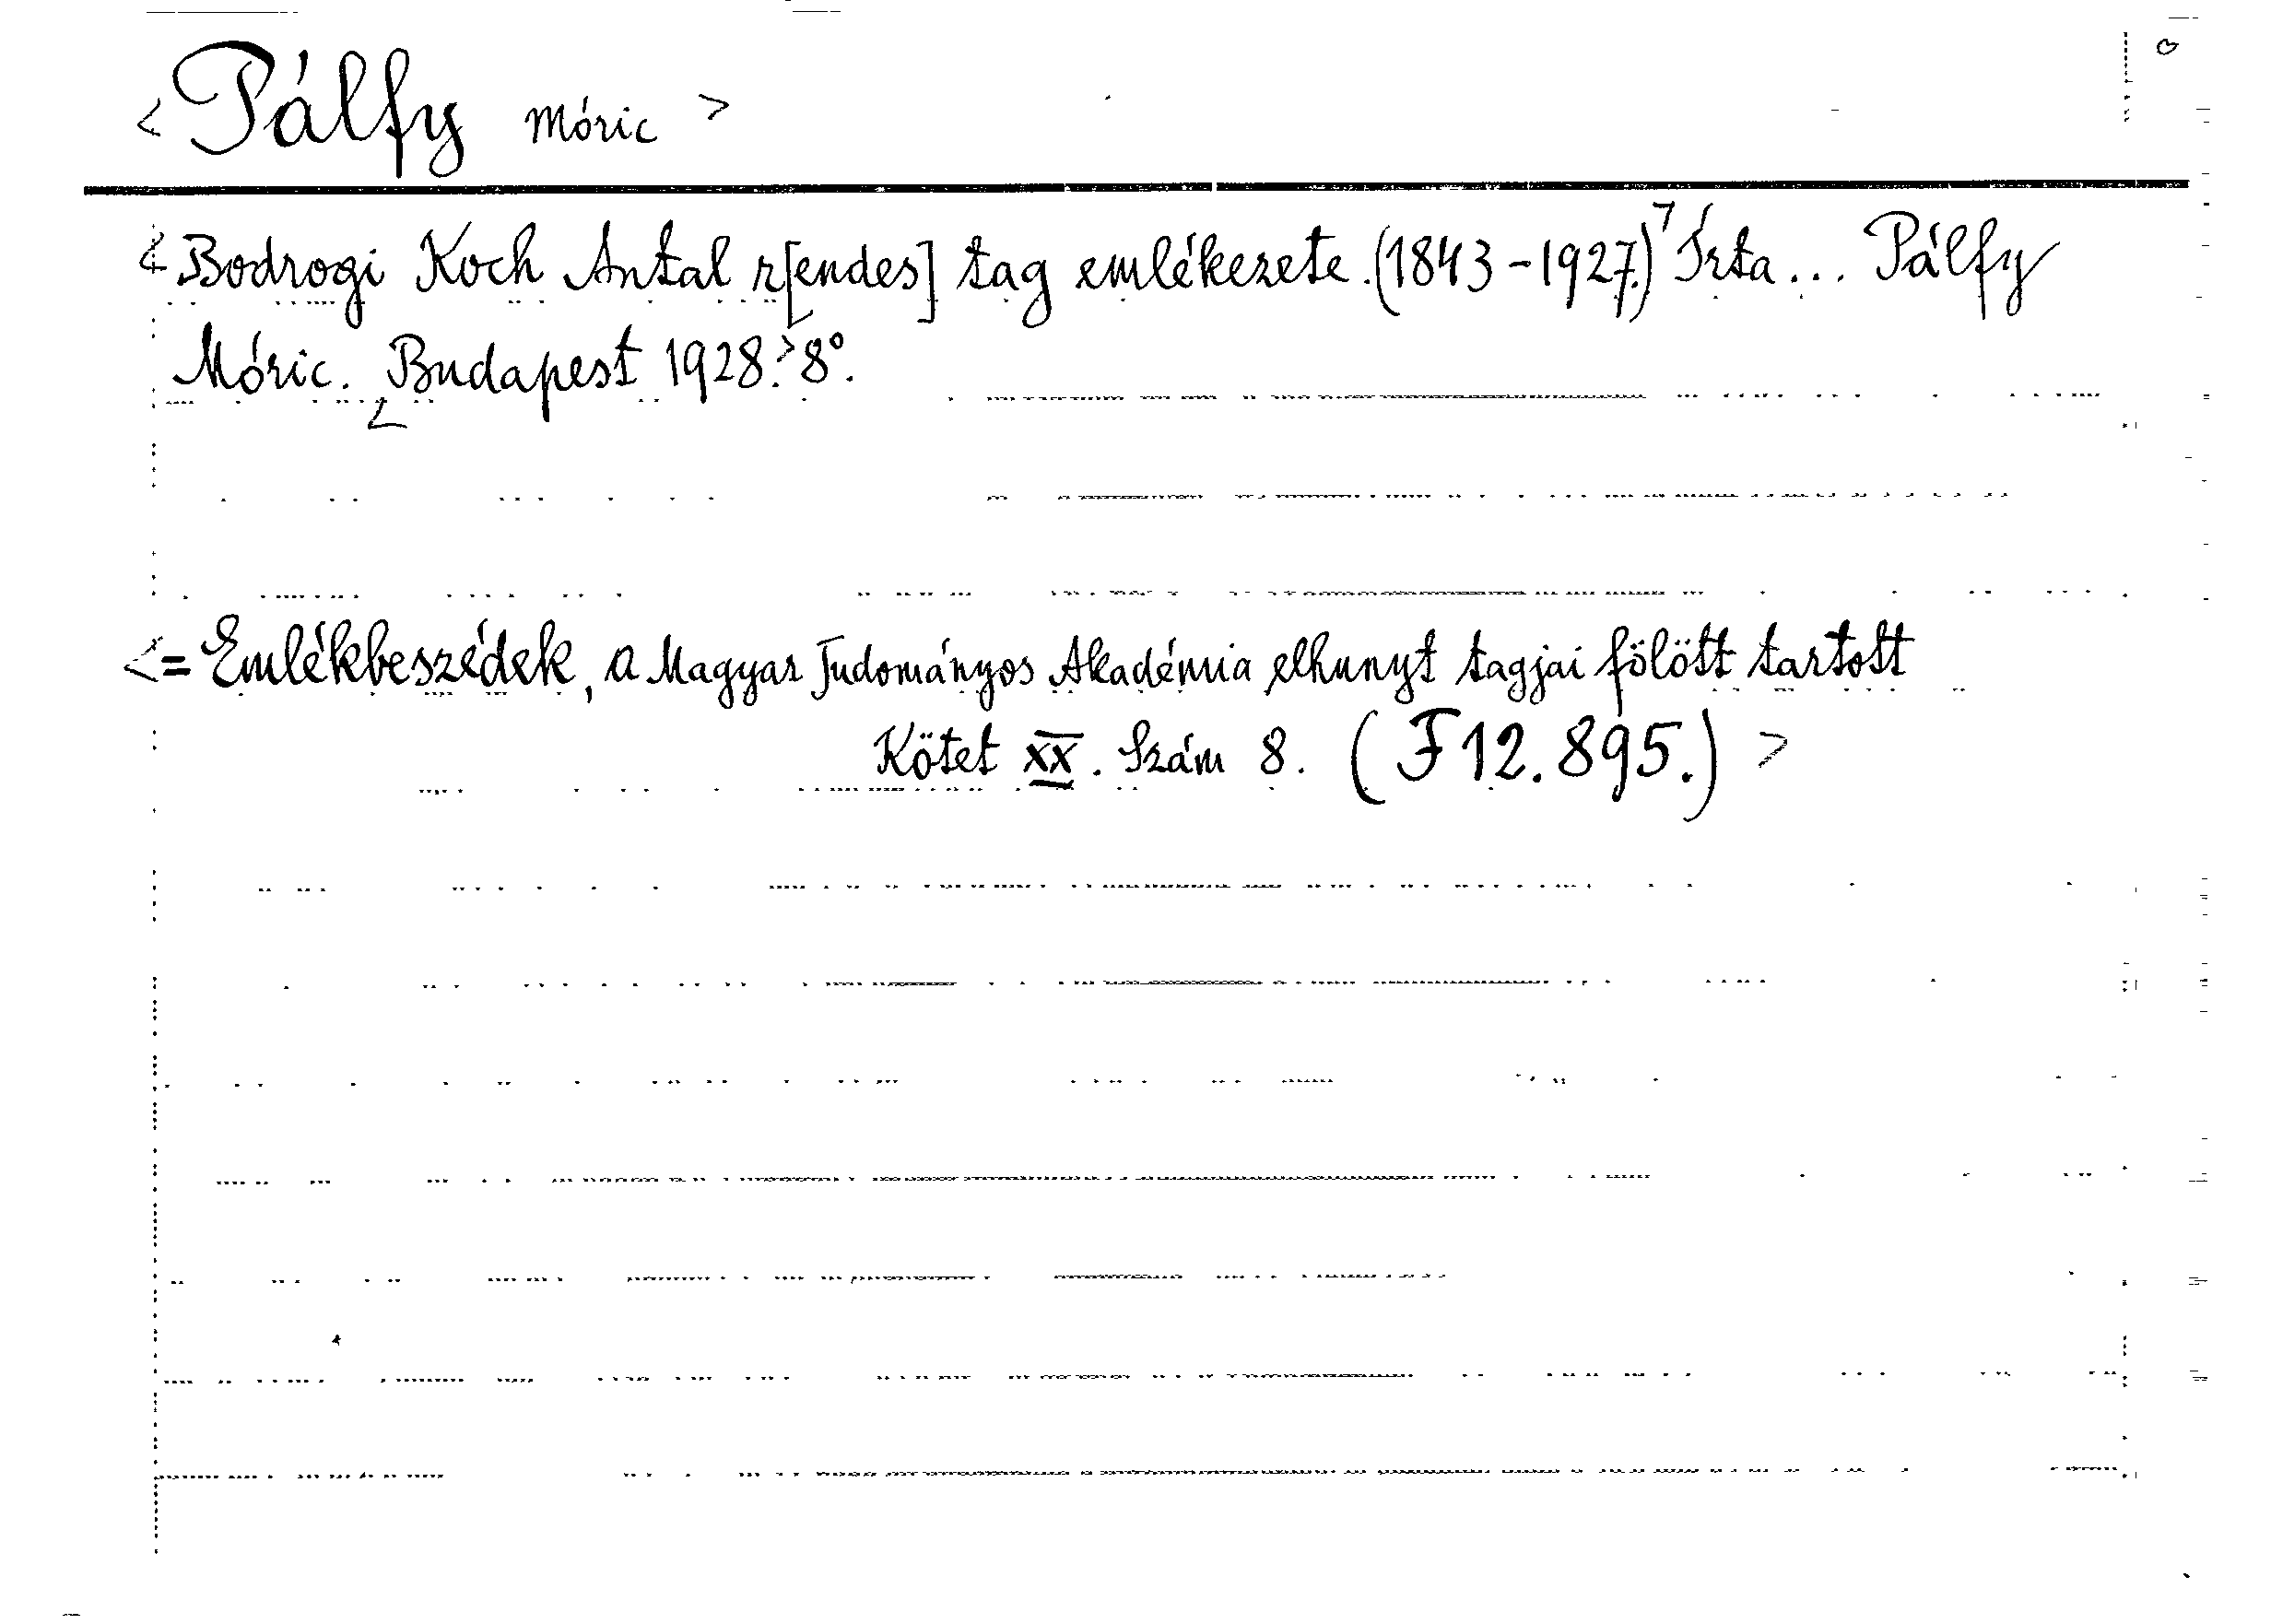 <Pálfy Móric>
<Bodrogi Koch Antal r[endes] tag emlékezete. (1843-1927.)> Írta... Pálfy
Móric. <Budapest 1928.> 8°.
<= Emlékbeszédek, a Magyar Tudományos Akadémia elhunyt tagjai fölött tartott
Kötet XX. Szám 8. (F12.895.) >